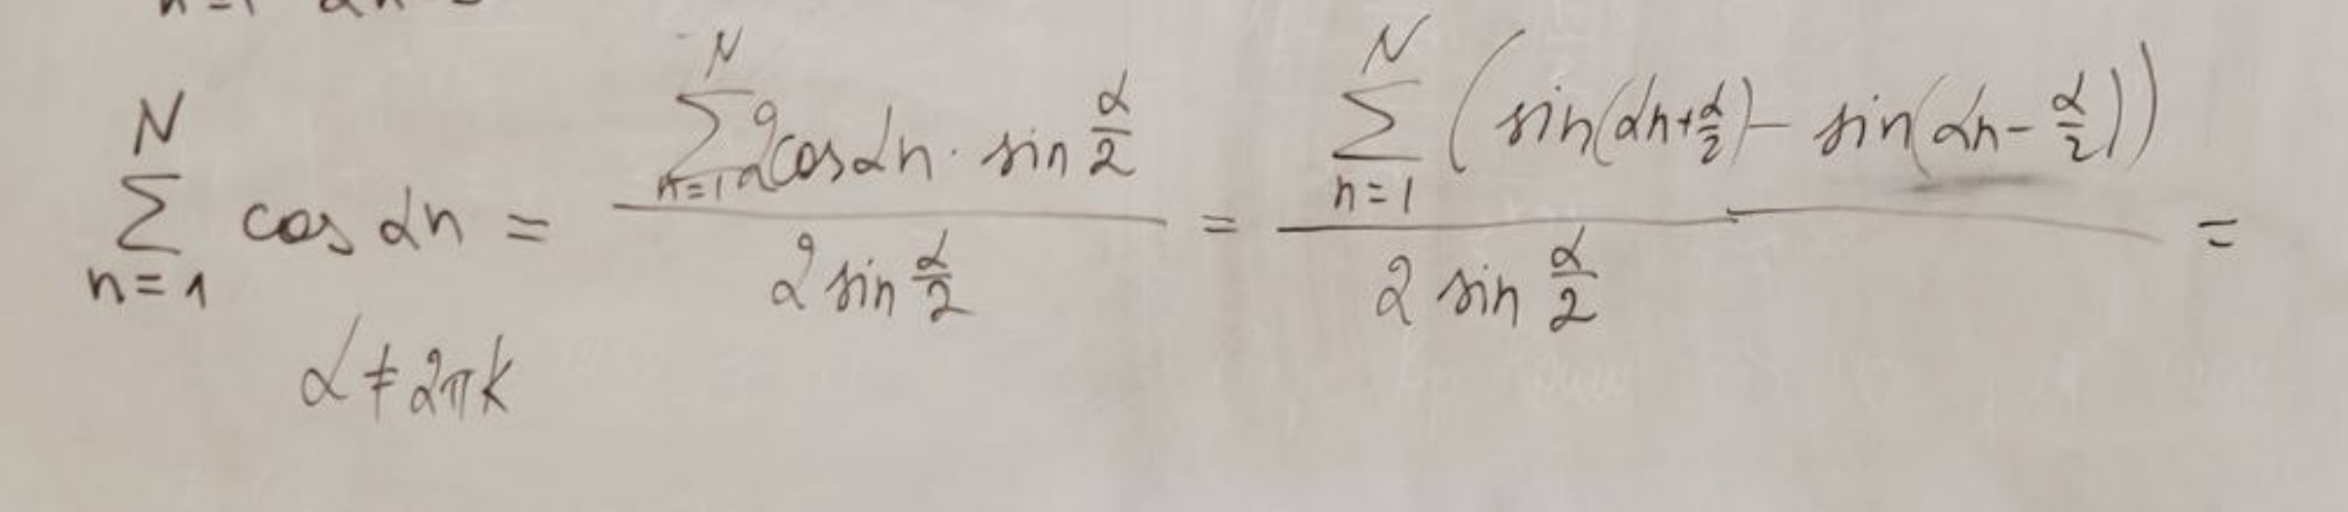 \sum_{n=1}^{N} \cos \alpha n = \frac{\sum_{n=1}^{N} 2\cos \alpha n \cdot \sin \frac{\alpha}{2}}{2 \sin \frac{\alpha}{2}} = \frac{\sum_{n=1}^{N} \left( \sin(\alpha n + \frac{\alpha}{2}) - \sin(\alpha n - \frac{\alpha}{2}) \right)}{2 \sin \frac{\alpha}{2}} =
\alpha \neq 2\pi k